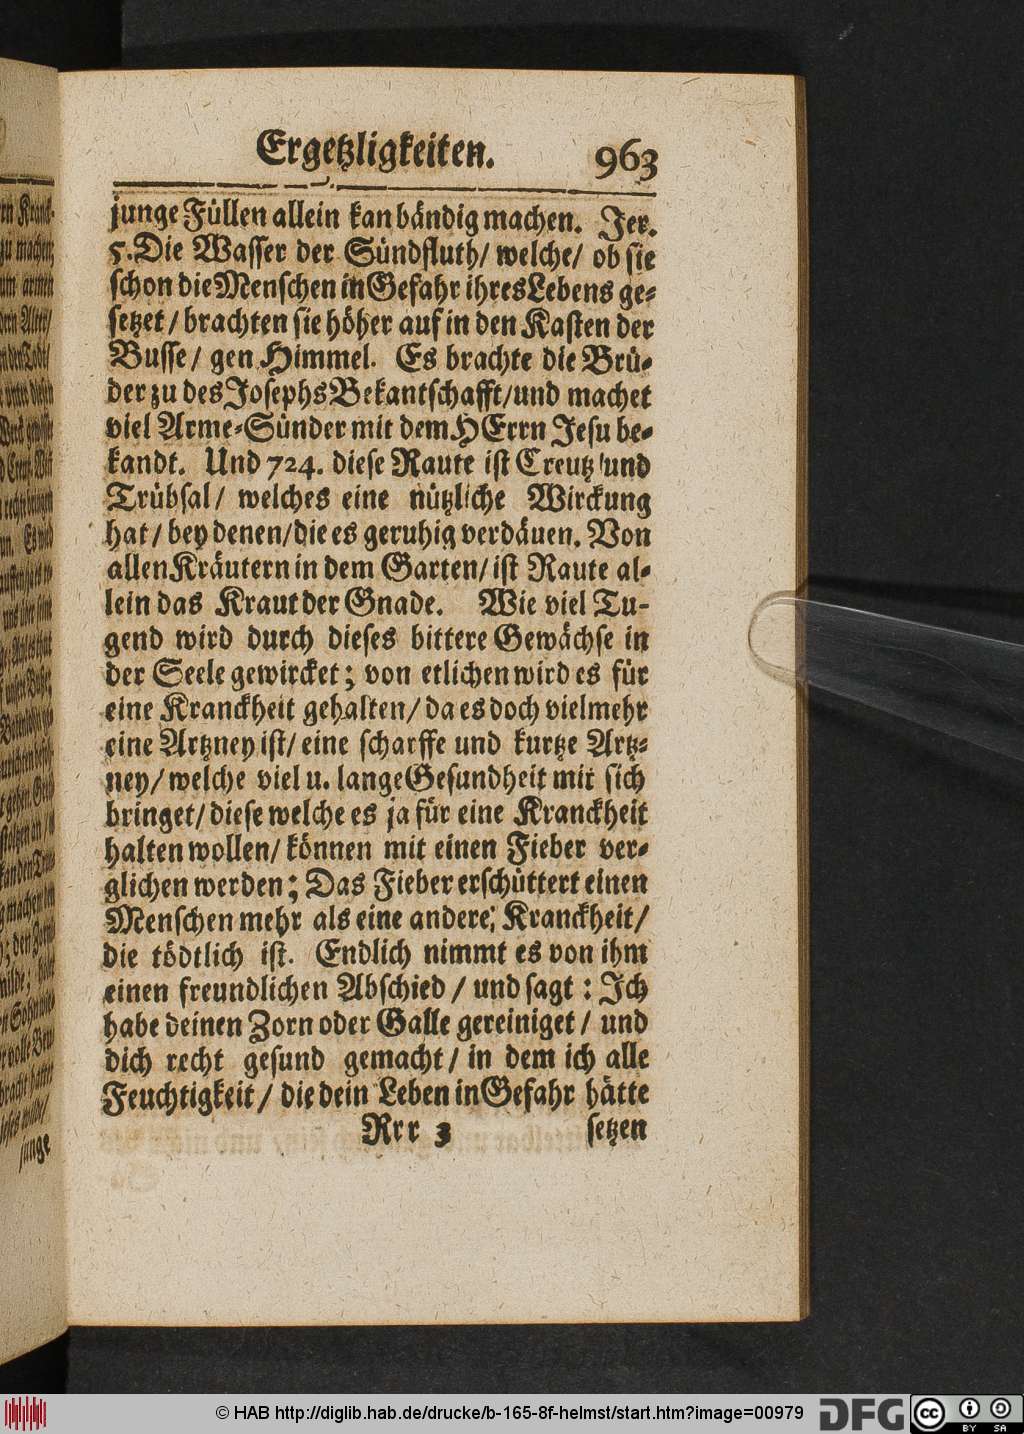 Ergetzligkeiten. 963
junge Füllen allein kan bändig machen. Jer.
5. Die Wasser der Sündfluth/ welche/ ob sie
schon die Menschen in Gefahr ihres Lebens ge-
setzet/ brachten sie höher auf in den Kasten der
Busse/ gen Himmel. Es brachte die Brü-
der zu des Josephs Bekantschafft/ und machet
viel Arme-Sünder mit dem HErrn Jesu be-
kandt. Und 724. diese Raute ist Creutz und
Trübsal/ welches eine nützliche Wirckung
hat/ bey denen/ die es geruhig verdäuen. Von
allen Kräutern in dem Garten/ ist Raute al-
lein das Kraut der Gnade. Wie viel Tu-
gend wird durch dieses bittere Gewächse in
der Seele gewircket; von etlichen wird es für
eine Kranckheit gehalten/ da es doch vielmehr
eine Artzney ist/ eine scharffe und kurtze Artz-
ney/ welche viel u. lange Gesundheit mit sich
bringet/ diese welche es ja für eine Kranckheit
halten wollen/ können mit einen Fieber ver-
glichen werden; Das Fieber erschüttert einen
Menschen mehr als eine andere Kranckheit/
die tödtlich ist. Endlich nimmt es von ihm
einen freundlichen Abschied/ und sagt: Ich
habe deinen Zorn oder Galle gereiniget/ und
dich recht gesund gemacht/ in dem ich alle
Feuchtigkeit/ die dein Leben in Gefahr hätte
Rrr 3 setzen
junge
© HAB http://diglib.hab.de/drucke/b-165-8f-helmst/start.htm?image=00979
DFG
cc BY SA